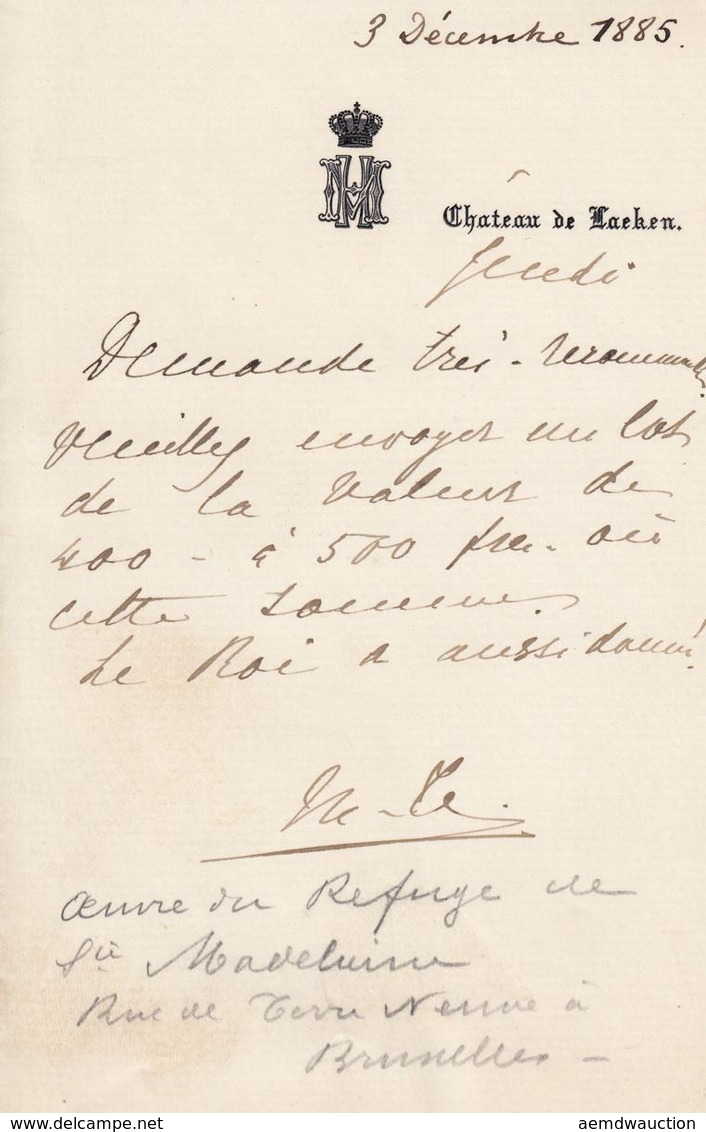 3 Décembre 1885.
Chateau de Laeken.
Jeudi
Demande très-
Veuillez envoyer un lot
de la valeur de
400 - à 500 frs. où
cette somme.
Le Roi a aussi donné
M-H.
Œuvre du Refuge de
Ste Madeleine
Rue de Terre Neuve à
Bruxelles -
aemdwauction